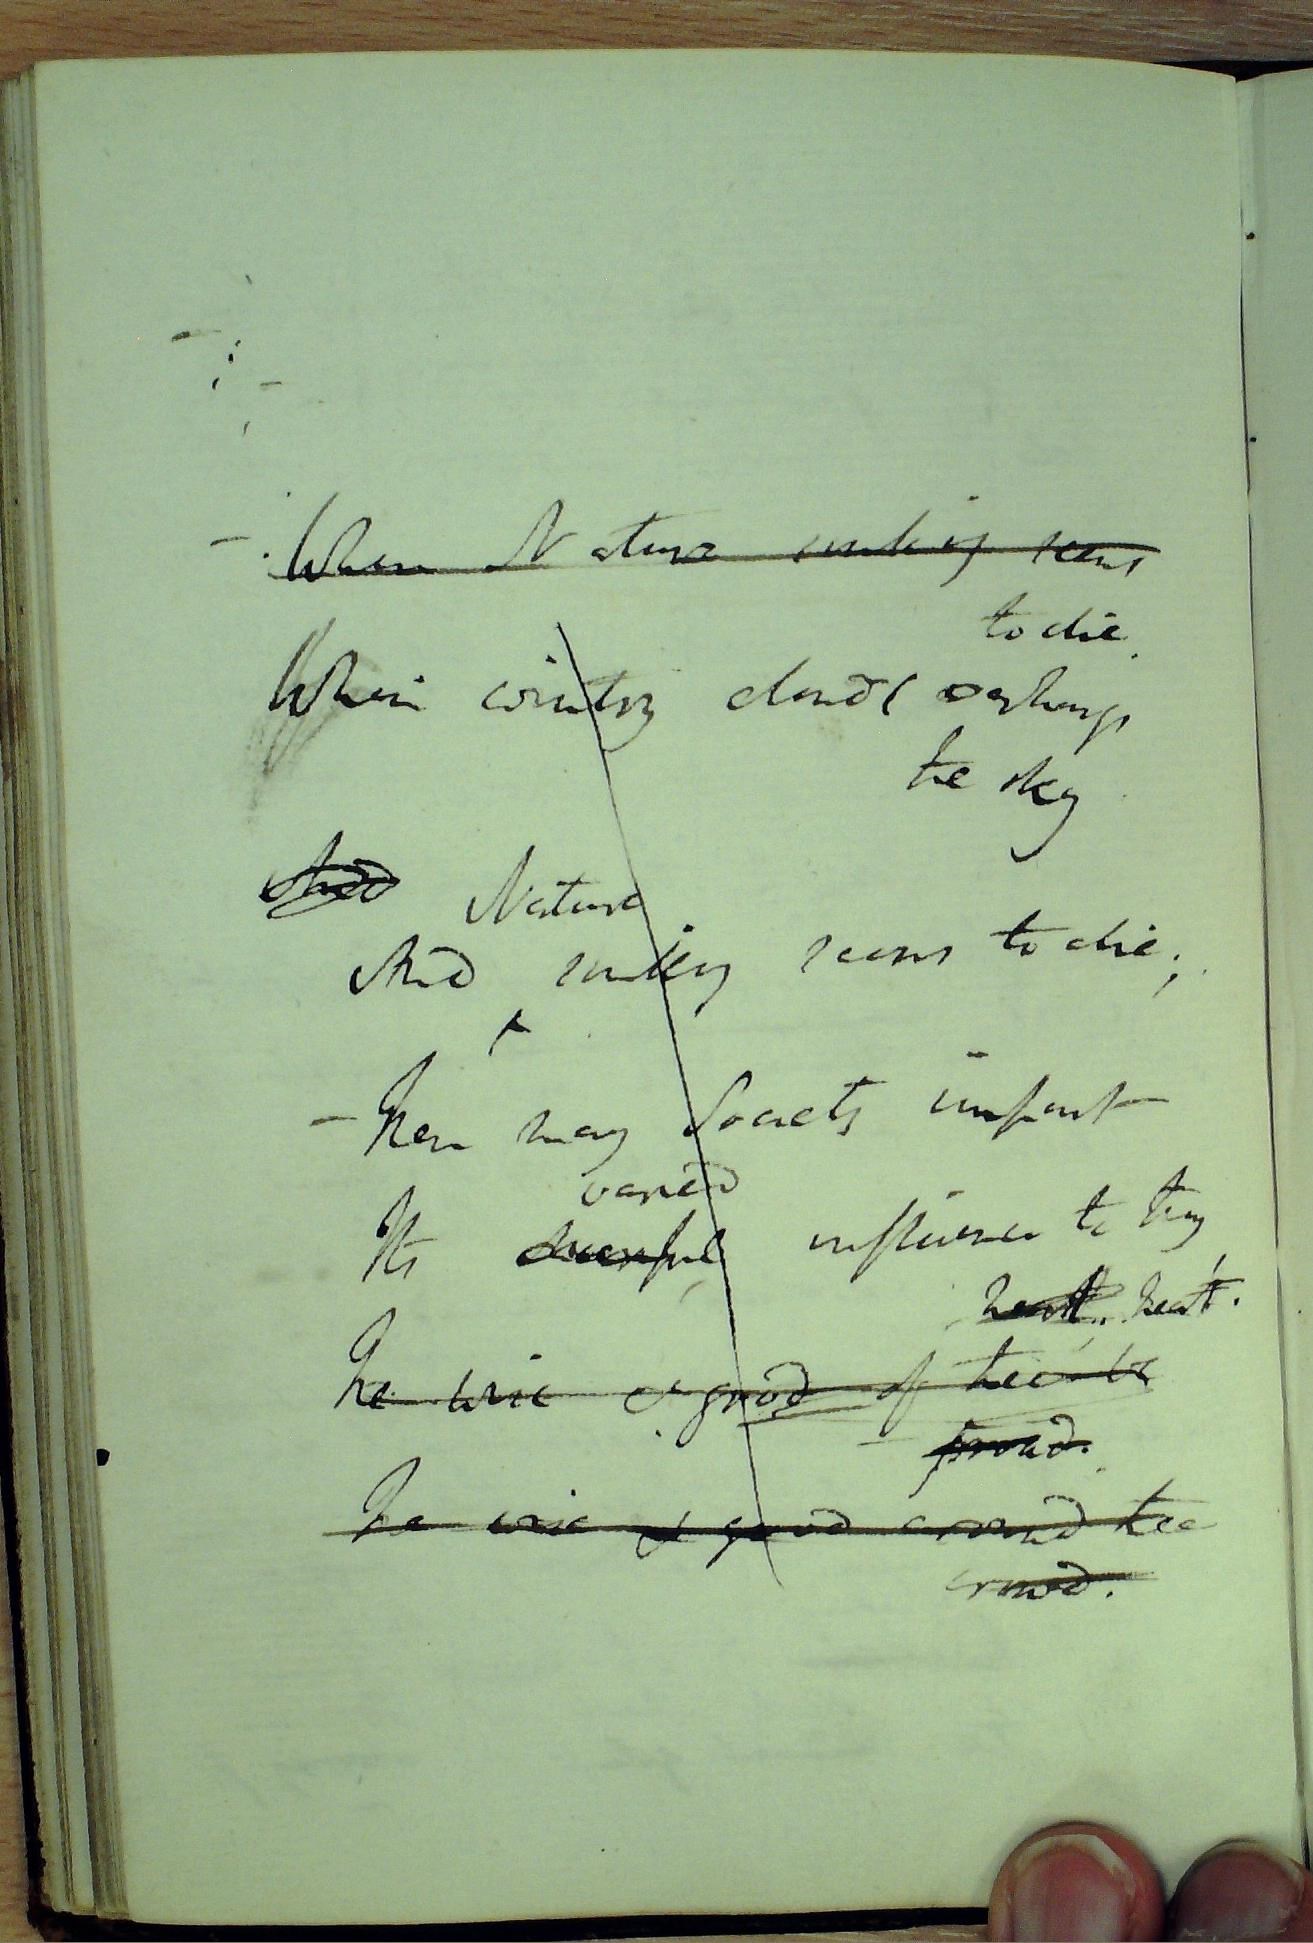 When Nature sinking seems
to die.
When wintry clouds o'erhang
the sky
And Nature
And sinking seems to die;
- Then may Society impart
varied
Its cheerful influence to thy
heart. heart.
The wise & good of thee is
proud.
The wise & good around thee
crowd.